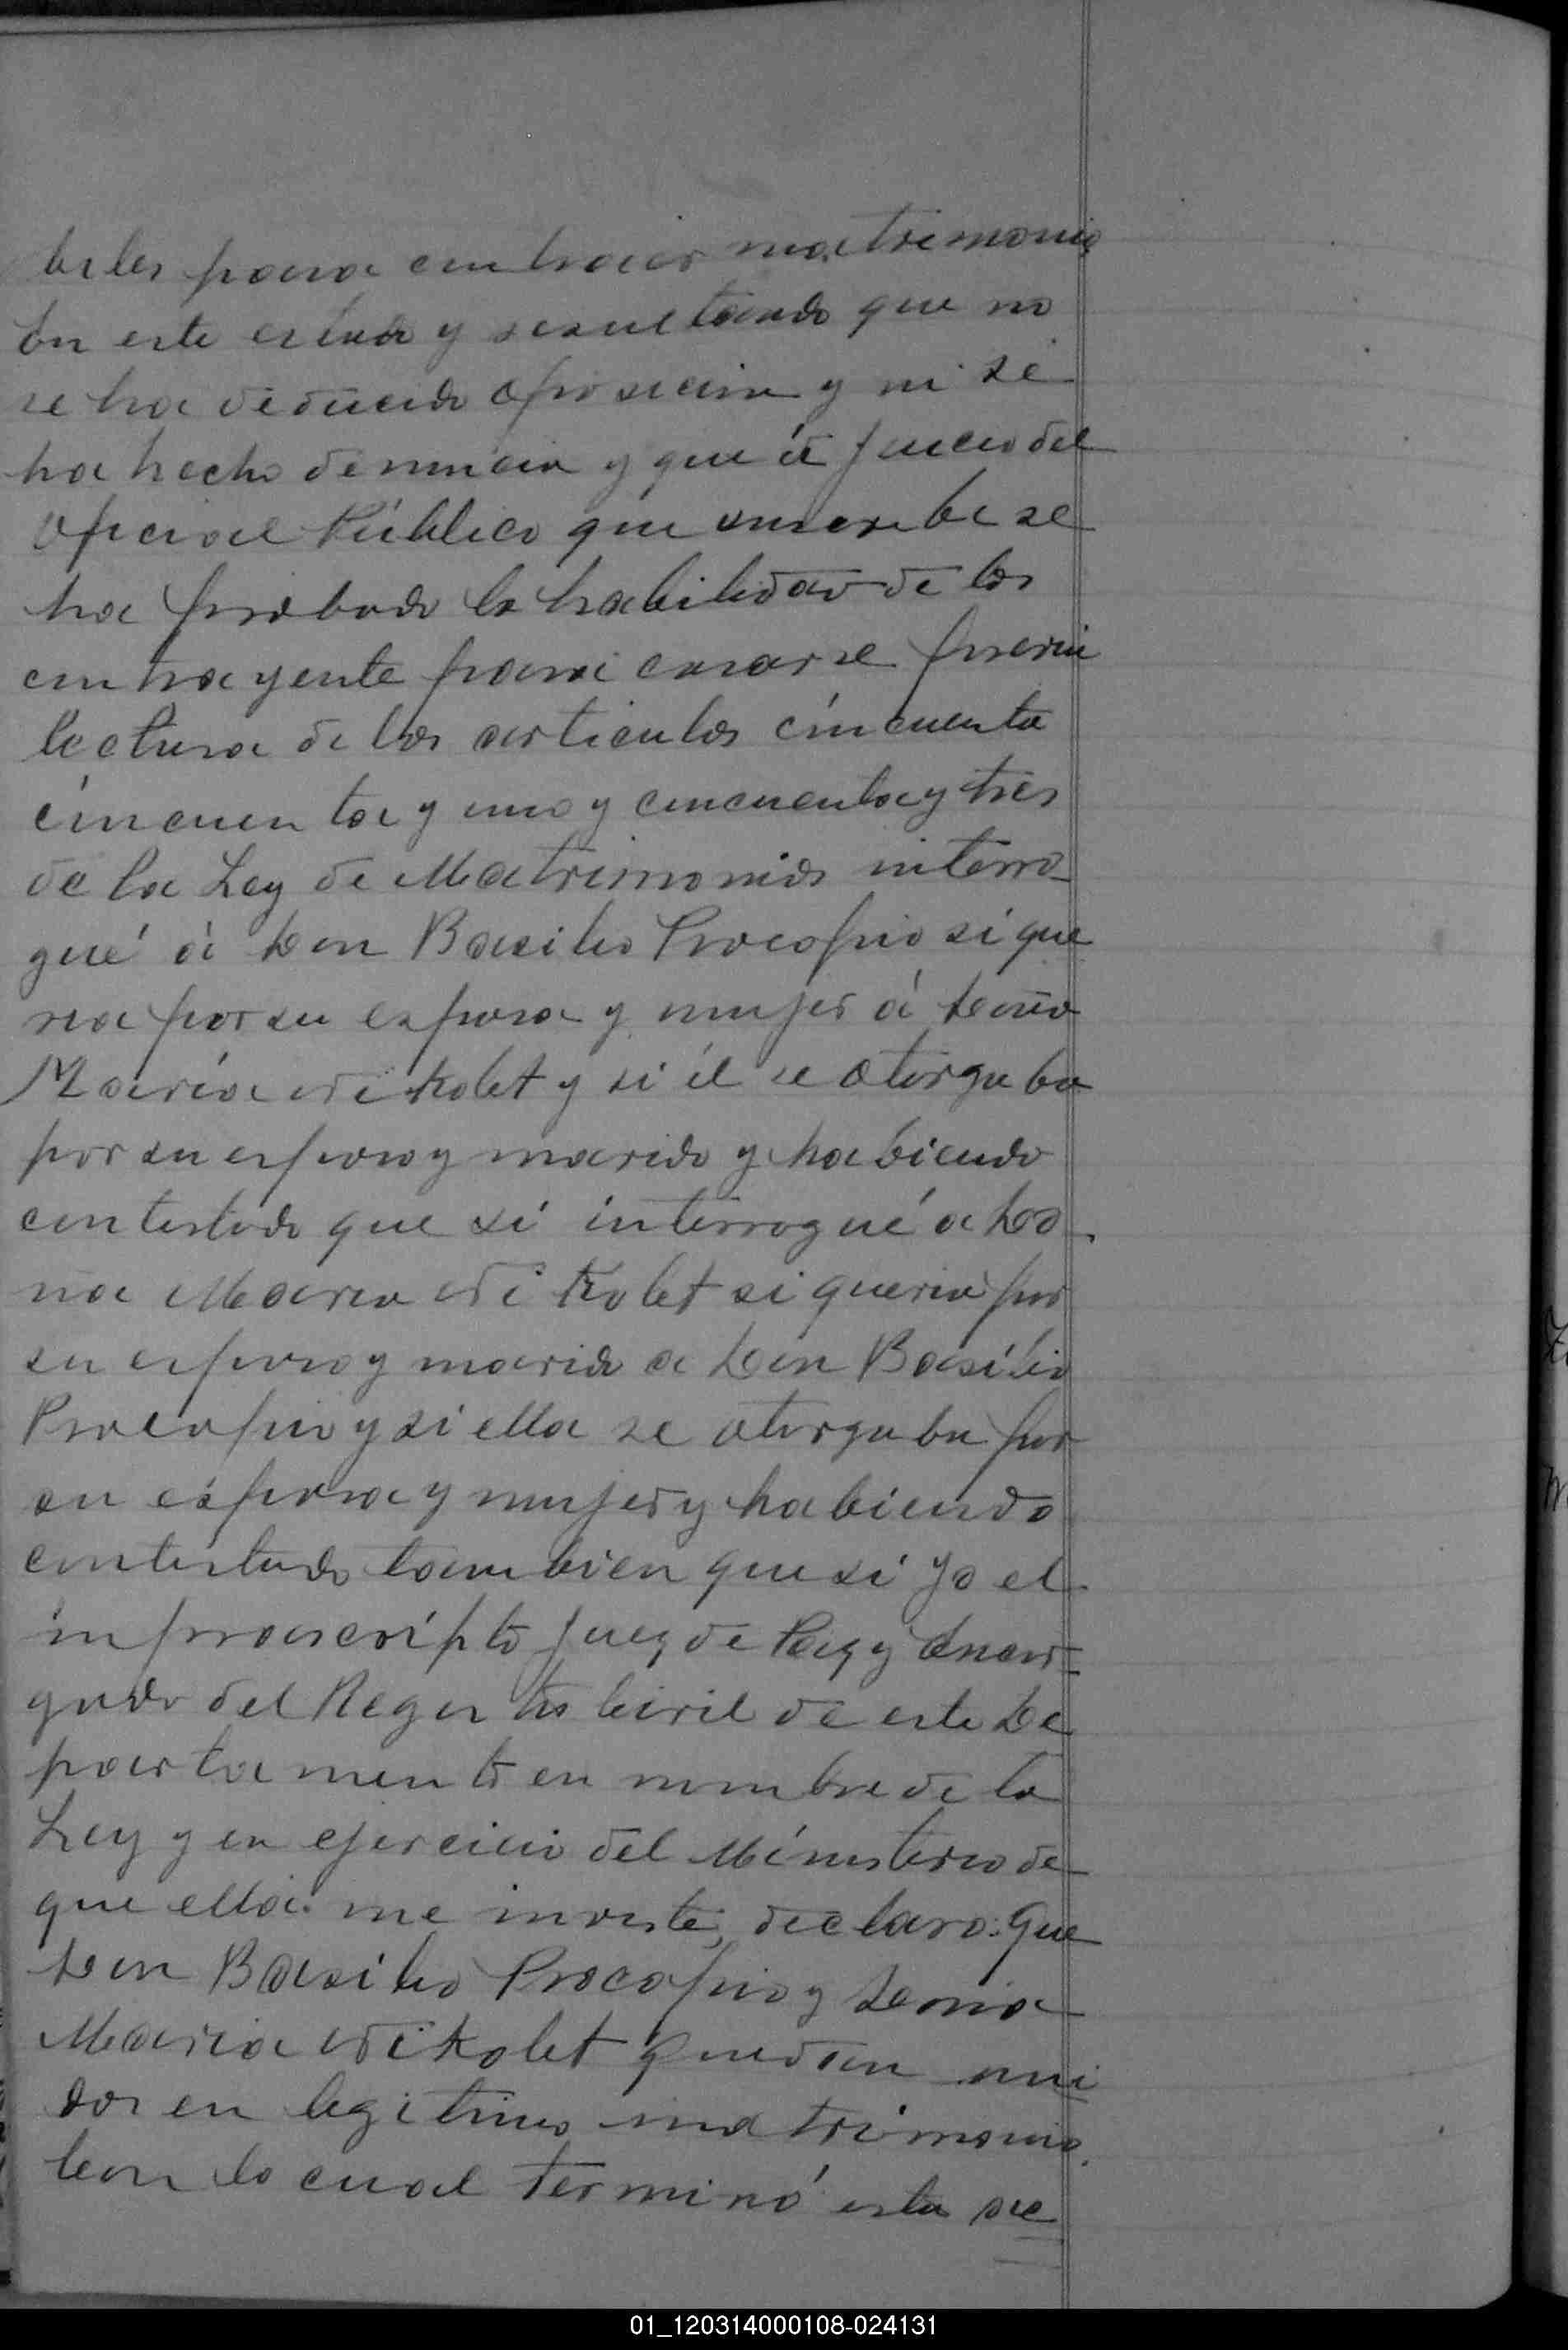 biles para contraer matrimonio
En este estado y resultando que no
se ha deducido oposicion y ni se
ha hecho denuncia y que á juicio del
Oficial Público que suscribe se
ha probado la habilidad de los
contrayente para casarse previa
lectura de los articulos cincuenta
cincuenta y uno y cincuenta y tres
de la Ley de Matrimonios interro-
gué á Don Basilio Procopio si que
ria por su esposa y mujer á Doña
María Nikolet y si él se otorgaba
por su esposo y marido y habiendo
contestado que si interrogué a Do-
ña Maria Nikolet si queria por
su esposo y marido a Don Basilio
Procopio y si ella se otorgaba por
su esposa y mujer y habiendo
contestado tambien que si Yo el
infrascripto Juez de Paz y Encar-
gado del Registro Civil de este De
partamento en nombre de la
Ley y en ejercicio del Ministerio de
que ella me inviste, declaro: Que
Don Basilio Procopio y Doña
Maria Nikolet quedan uni
dos en legitimo matrimonio.
Con lo cual terminó esta ac
01_120314000108-024131